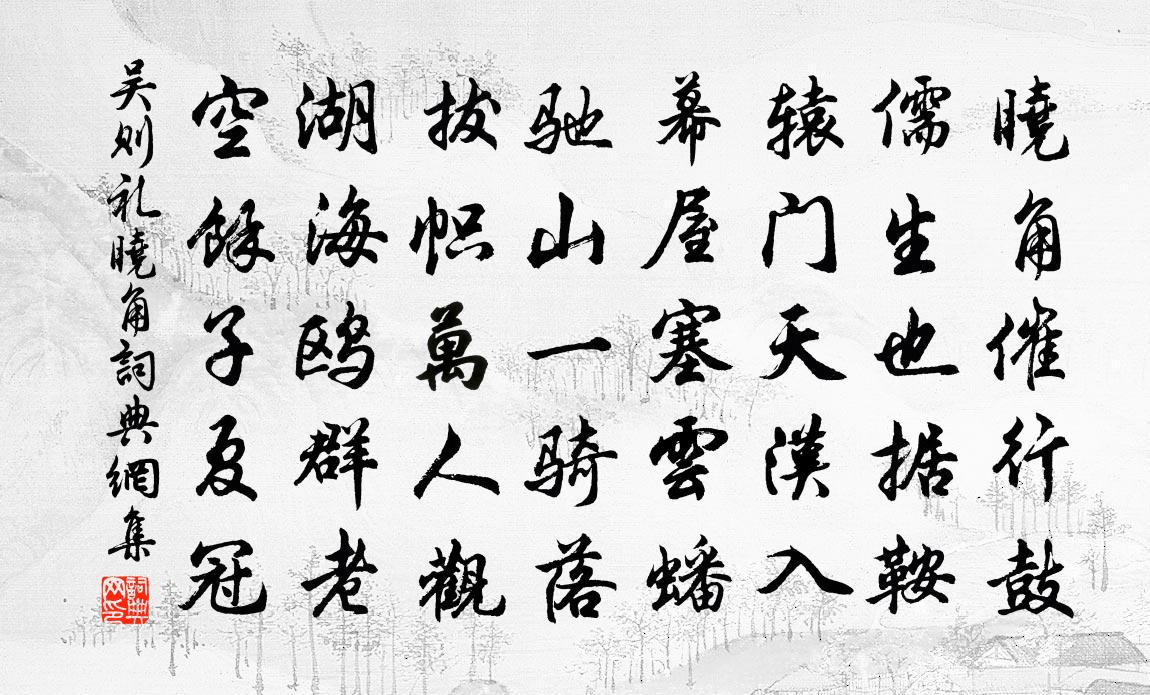 曉角催行鼓
儒生也据鞍
辕门天漢入
幕屋塞雲蟠
驰山一骑落
拔帜萬人觀
湖海鸥群老
空餘子夏冠
吴则礼曉角詞典網集
詞典网印